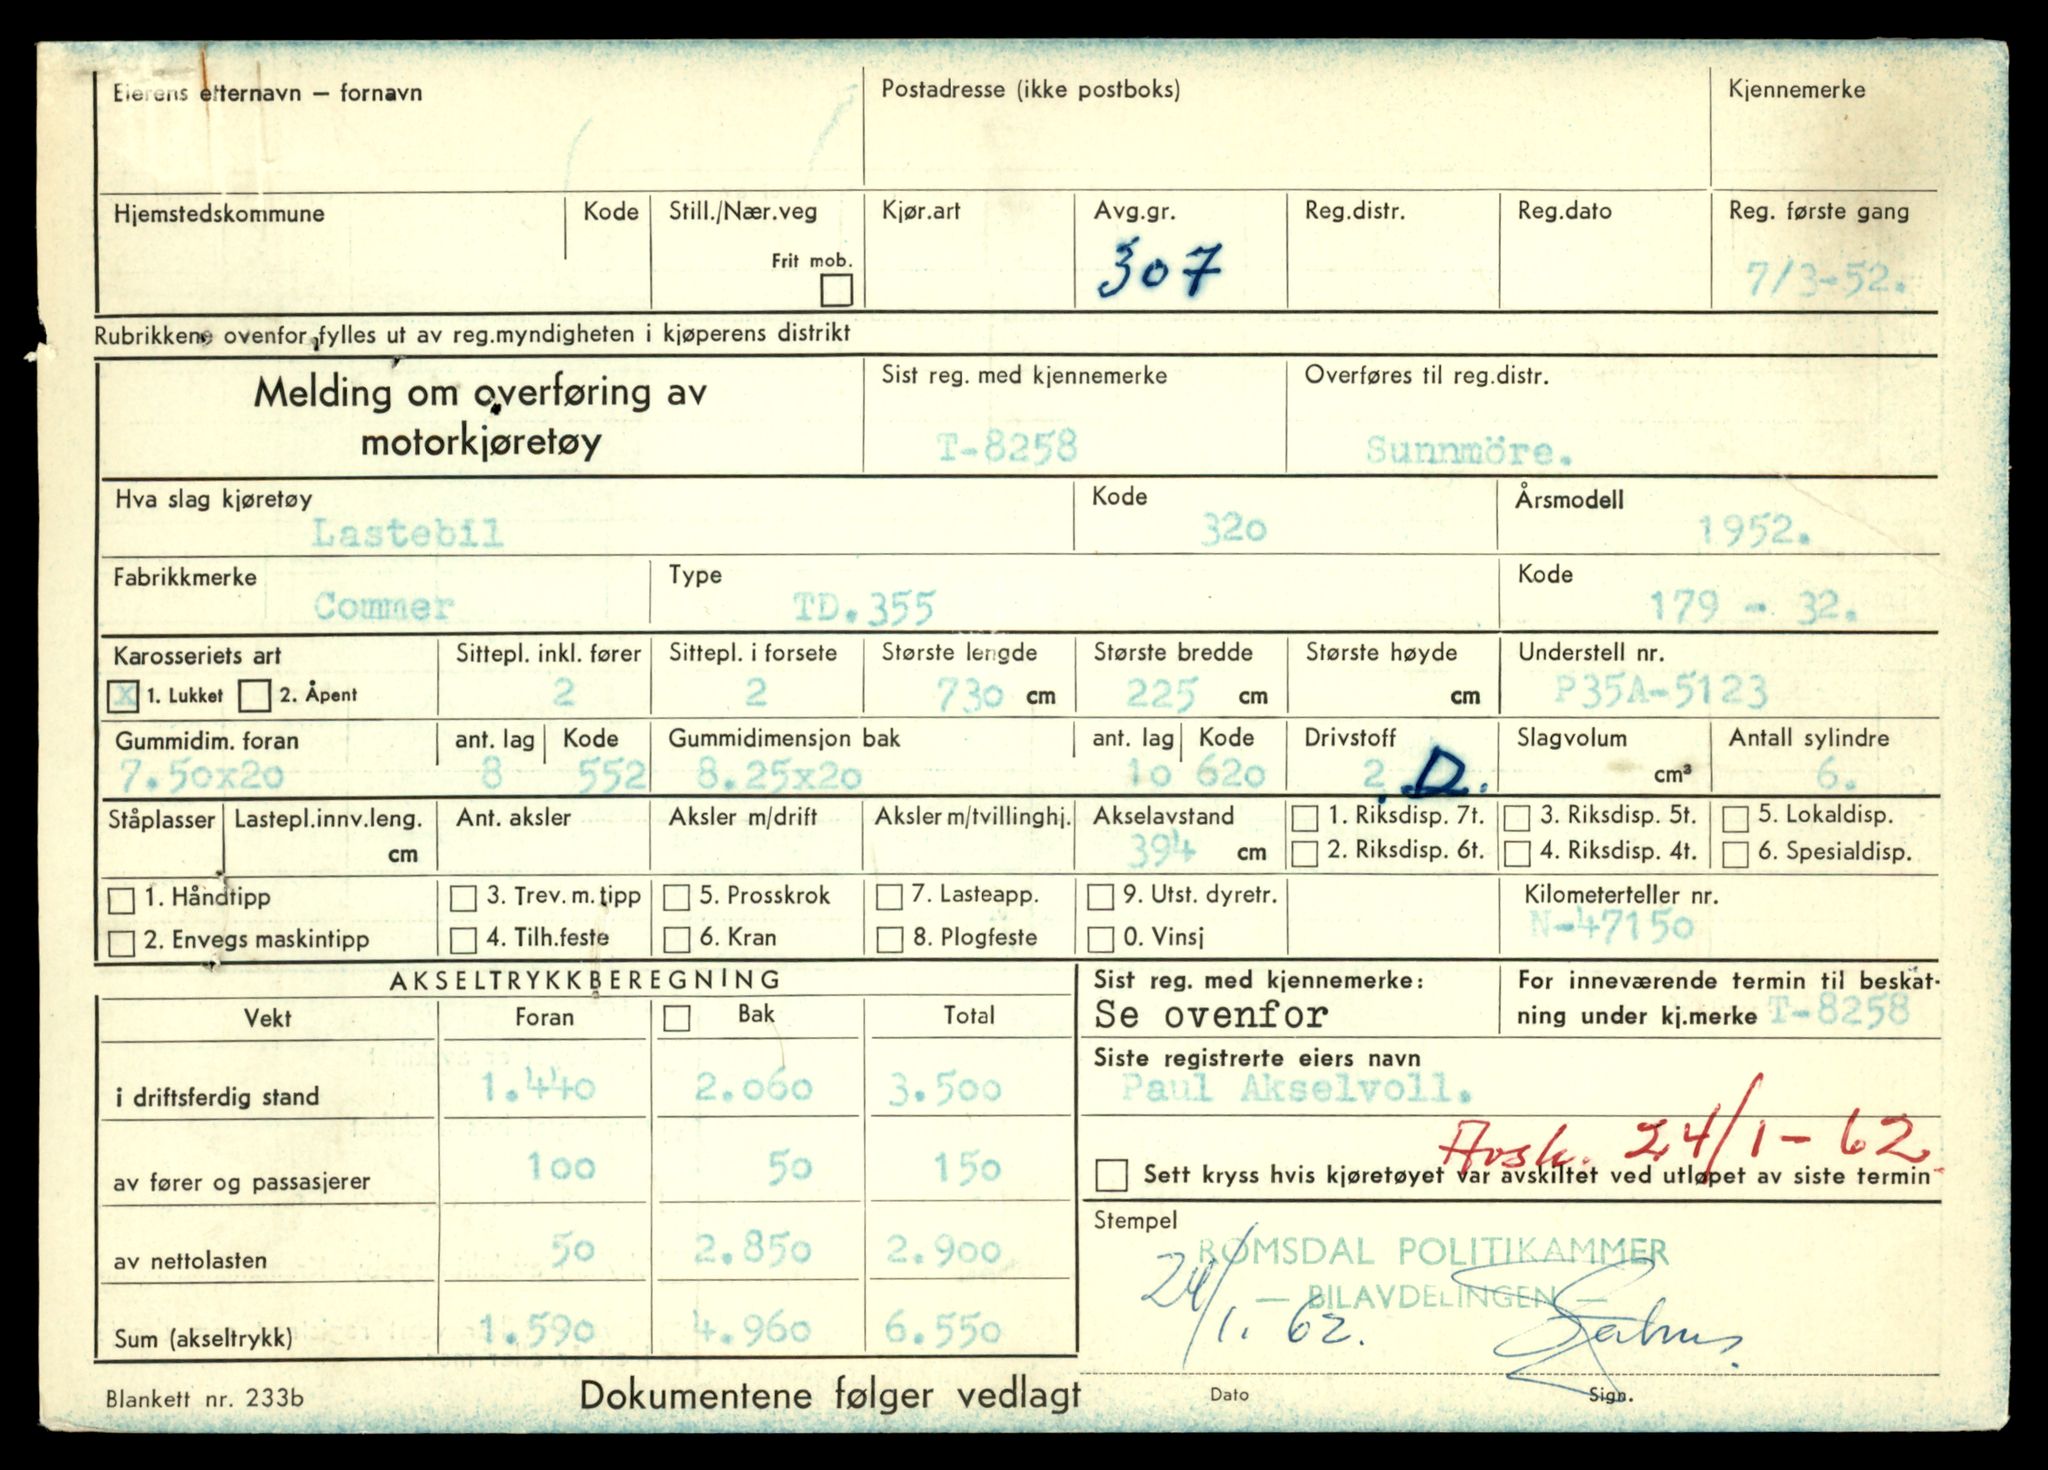 Eierens etternavn – fornavn
Postadresse (ikke postboks)
Kjennemerke
Hjemstedskommune
Kode
Still./Nær.veg
Frit mob.
Kjør.art
Avg.gr.
307
Reg.distr.
Reg.dato
Reg. første gang
7/3-52.
Rubrikkene ovenfor fylles ut av reg.myndigheten i kjøperens distrikt
Melding om overføring av
motorkjøretøy
Sist reg. med kjennemerke
T-8258
Overføres til reg.distr.
Sunnmöre.
Hva slag kjøretøy
Lastebil
Kode
320
Årsmodell
1952.
Fabrikkmerke
Commer
Type
TD.355
Kode
179 - 32.
Karosseriets art
X 1. Lukket 2. Åpent
Sittepl. inkl. fører
2
Sittepl. i forsete
2
Største lengde
730 cm
Største bredde
225 cm
Største høyde
cm
Understell nr.
P35A-5123
Gummidim. foran
7.50x20
ant. lag
8
Kode
552
Gummidimensjon bak
8.25x20
ant. lag
10
Kode
620
Drivstoff
2 D.
Slagvolum
cm³
Antall sylindre
6.
Ståplasser
Lastepl.innv.leng.
cm
Ant. aksler
Aksler m/drift
Aksler m/tvillinghj.
Akselavstand
394 cm
1. Riksdisp. 7t.
2. Riksdisp. 6t.
3. Riksdisp. 5t.
4. Riksdisp. 4t.
5. Lokaldisp.
6. Spesialdisp.
1. Håndtipp
2. Envegs maskintipp
3. Trev. m. tipp
4. Tilh.feste
5. Prosskrok
6. Kran
7. Lasteapp.
8. Plogfeste
9. Utst. dyretr.
0. Vinsj
Kilometerteller nr.
N-47150
AKSELTRYKKBEREGNING
Vekt Foran Bak Total
i driftsferdig stand 1.440 2.060 3.500
av fører og passasjerer 100 50 150
av nettolasten 50 2.850 2.900
Sum (akseltrykk) 1.590 4.960 6.550
Sist reg. med kjennemerke:
Se ovenfor
For inneværende termin til beskat-
ning under kj.merke T-8258
Siste registrerte eiers navn
Paul Akselvoll.
Avsk. 24/1-62
Sett kryss hvis kjøretøyet var avskiltet ved utløpet av siste termin
Stempel
ROMSDAL POLITIKAMMER
— BILAVDELINGEN —
24/1. 62.
Dato
Sign.
Blankett nr. 233b
Dokumentene følger vedlagt